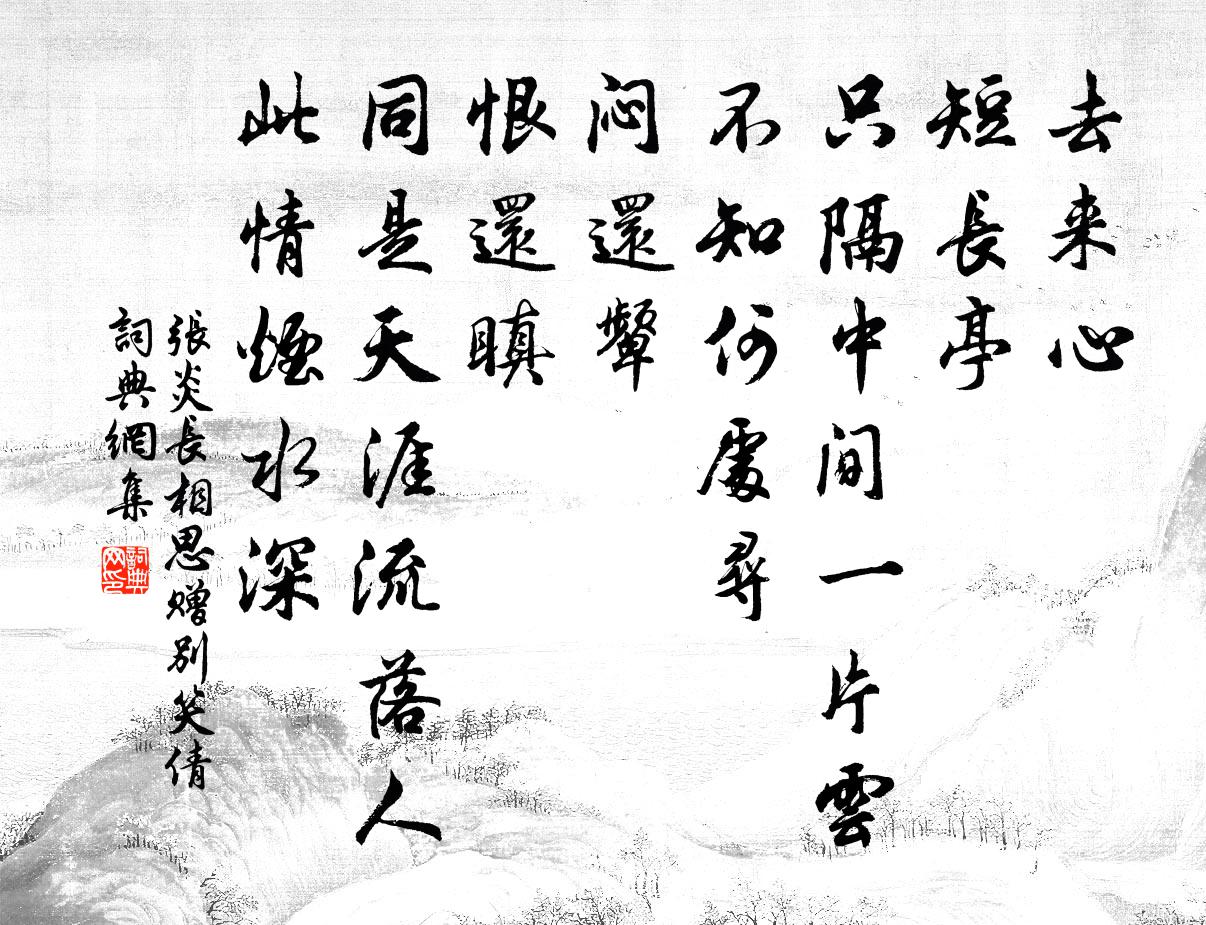 去来心
短長亭
只隔中间一片雲
不知何處尋
闷還顰
恨還瞋
同是天涯流落人
此情煙水深
張炎長相思赠别笑倩
詞典網集
詞典网印